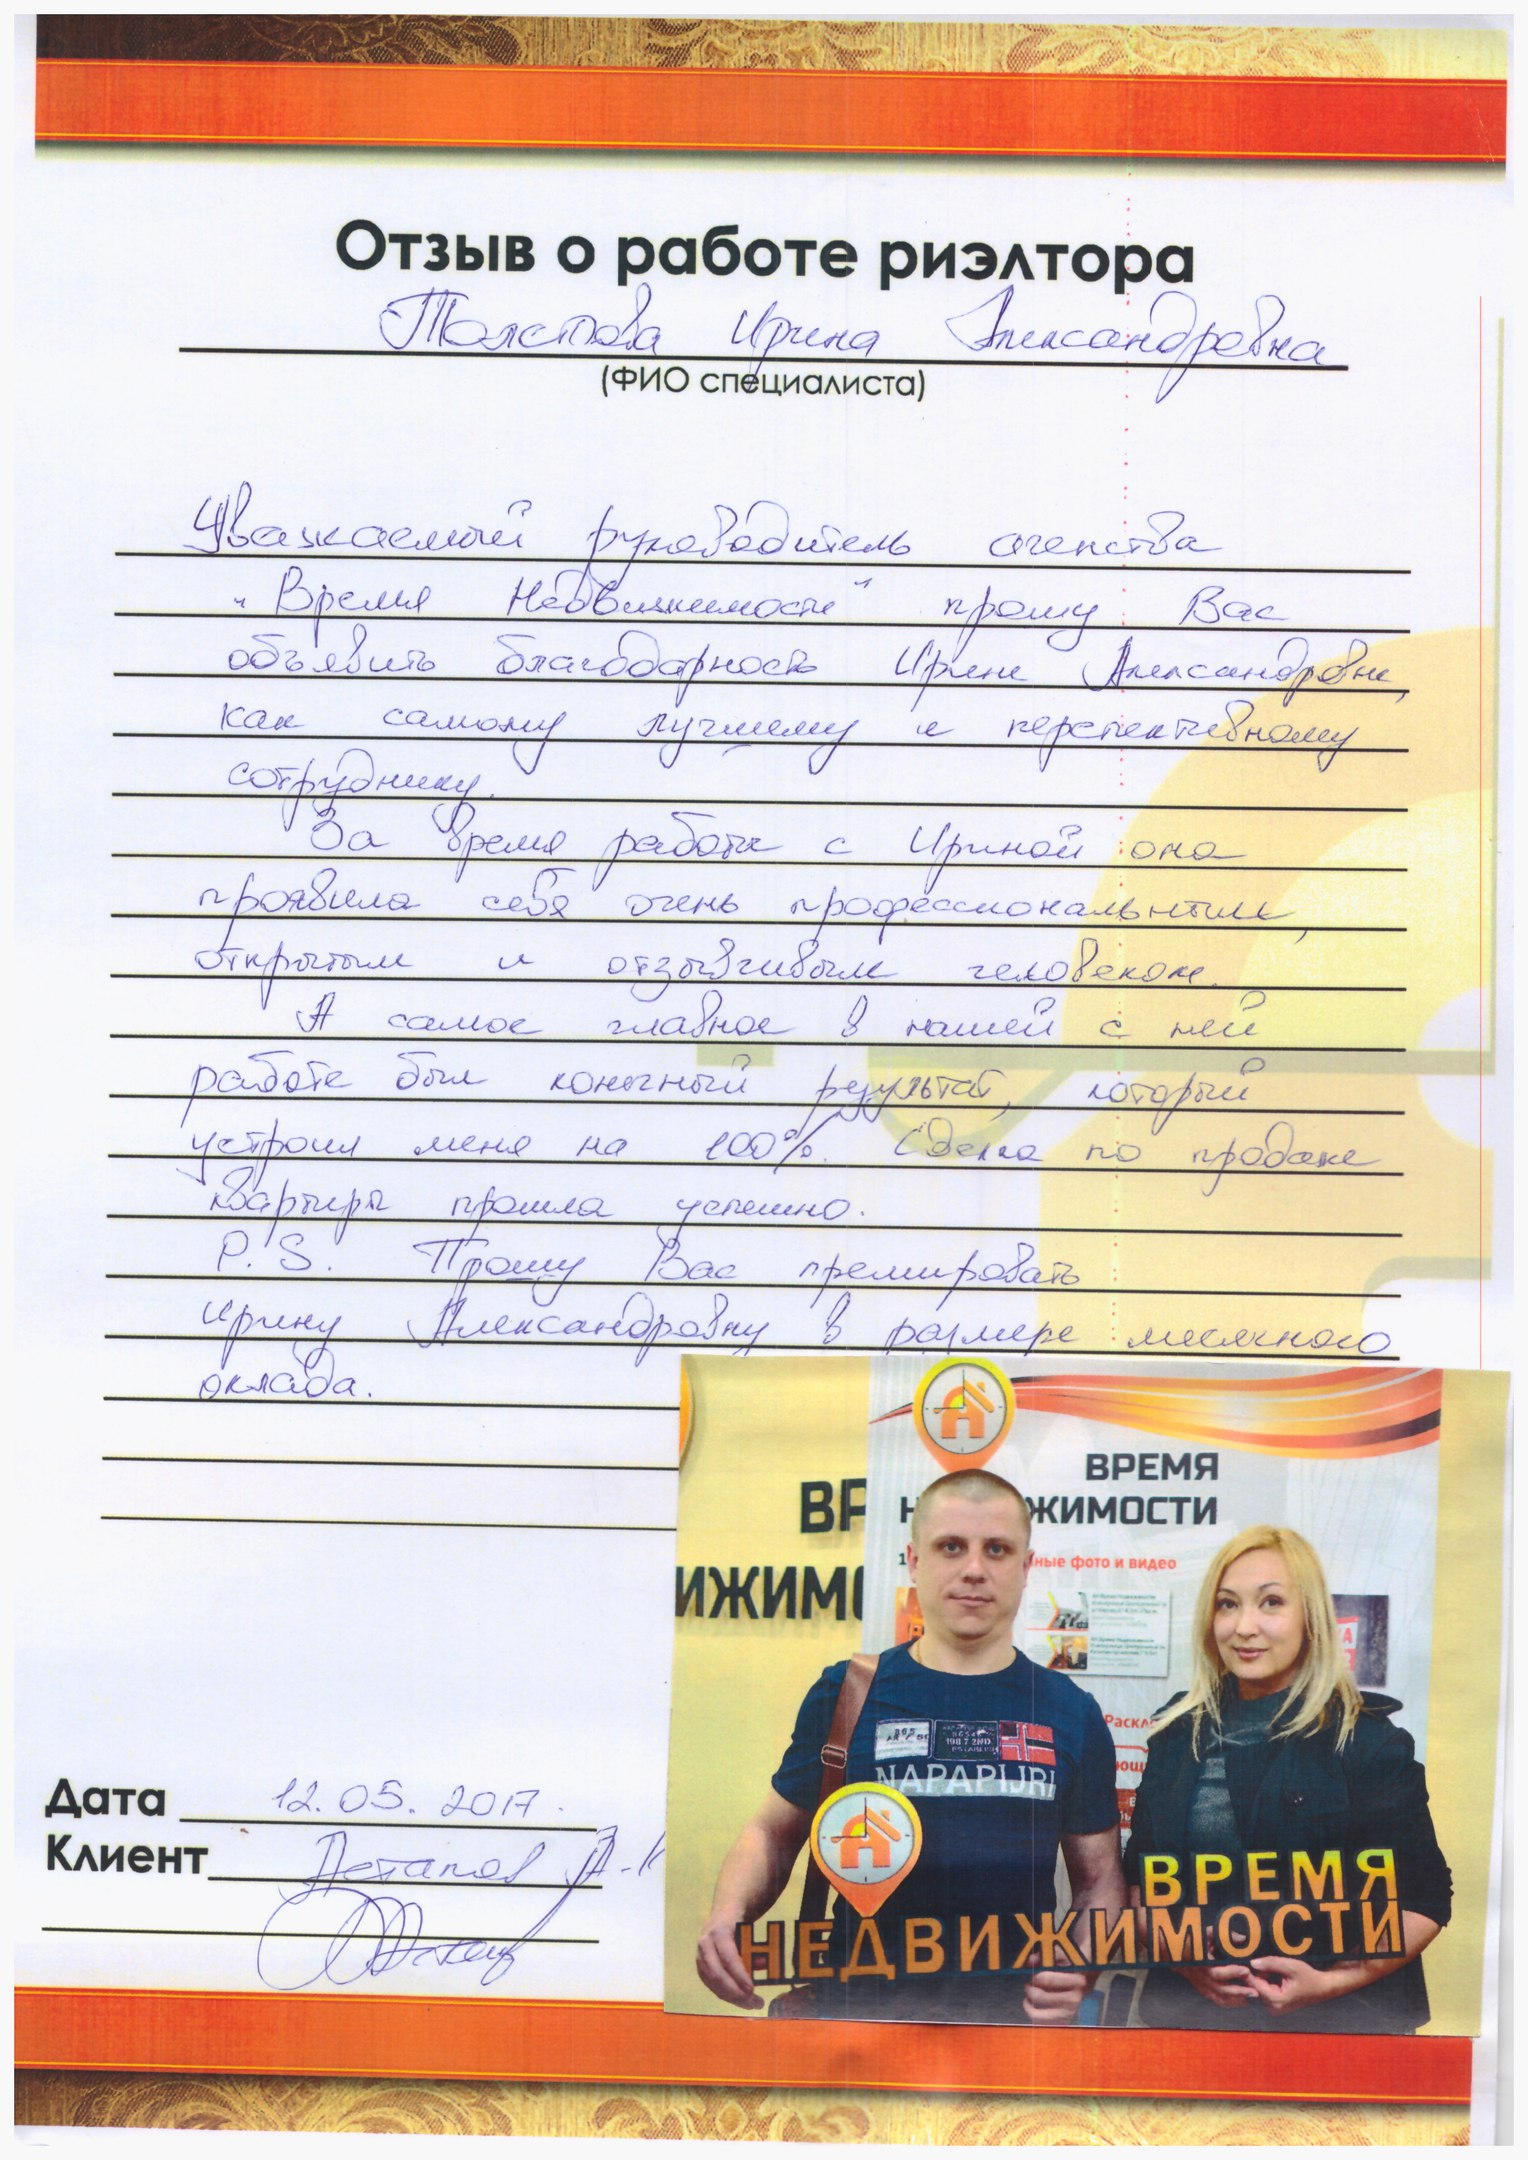 Отзыв о работе риэлтора
Толстова Ирина Александровна
(ФИО специалиста)
Уважаемый руководитель агенства
"Время Недвижимости" прошу Вас
объявить благодарность Ирине Александровне,
как самому лучшему и перспективному
сотруднику.
За время работы с Ириной она
проявила себя очень профессиональным,
открытым и отзывчивым человеком.
А самое главное в нашей с ней
работе был конечный результат, который
устроил меня на 100%. Сделка по продаже
квартиры прошла успешно.
P.S. Прошу Вас премировать
Ирину Александровну в размере месячного
оклада.
ВРЕМЯ
ЖИМОСТИ
ВР
ИЖИМО
ные фото и видео
Раскл
865
198 7 2ND
NAPAPIJRI
ВРЕМЯ
НЕДВИЖИМОСТИ
Дата 12.05.2017.
Клиент Потапов А.К